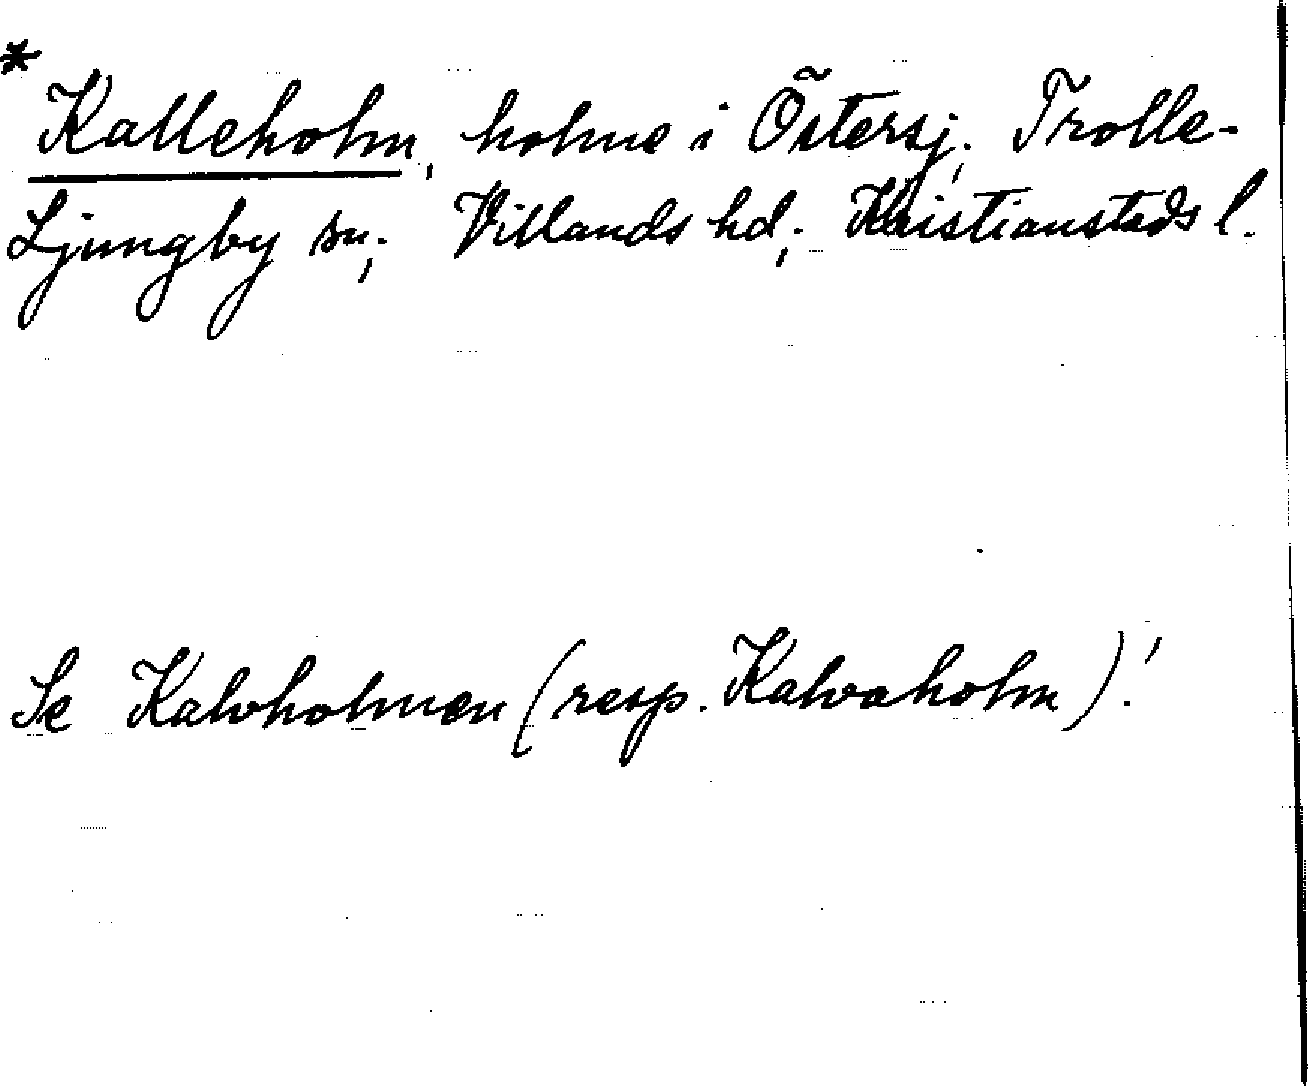 * Kalleholm, holme i Östersj., Trolle-
Ljungby sn., Villands hd., Kristianstads l.
Se Kalvholmen (resp. Kalvaholm)!